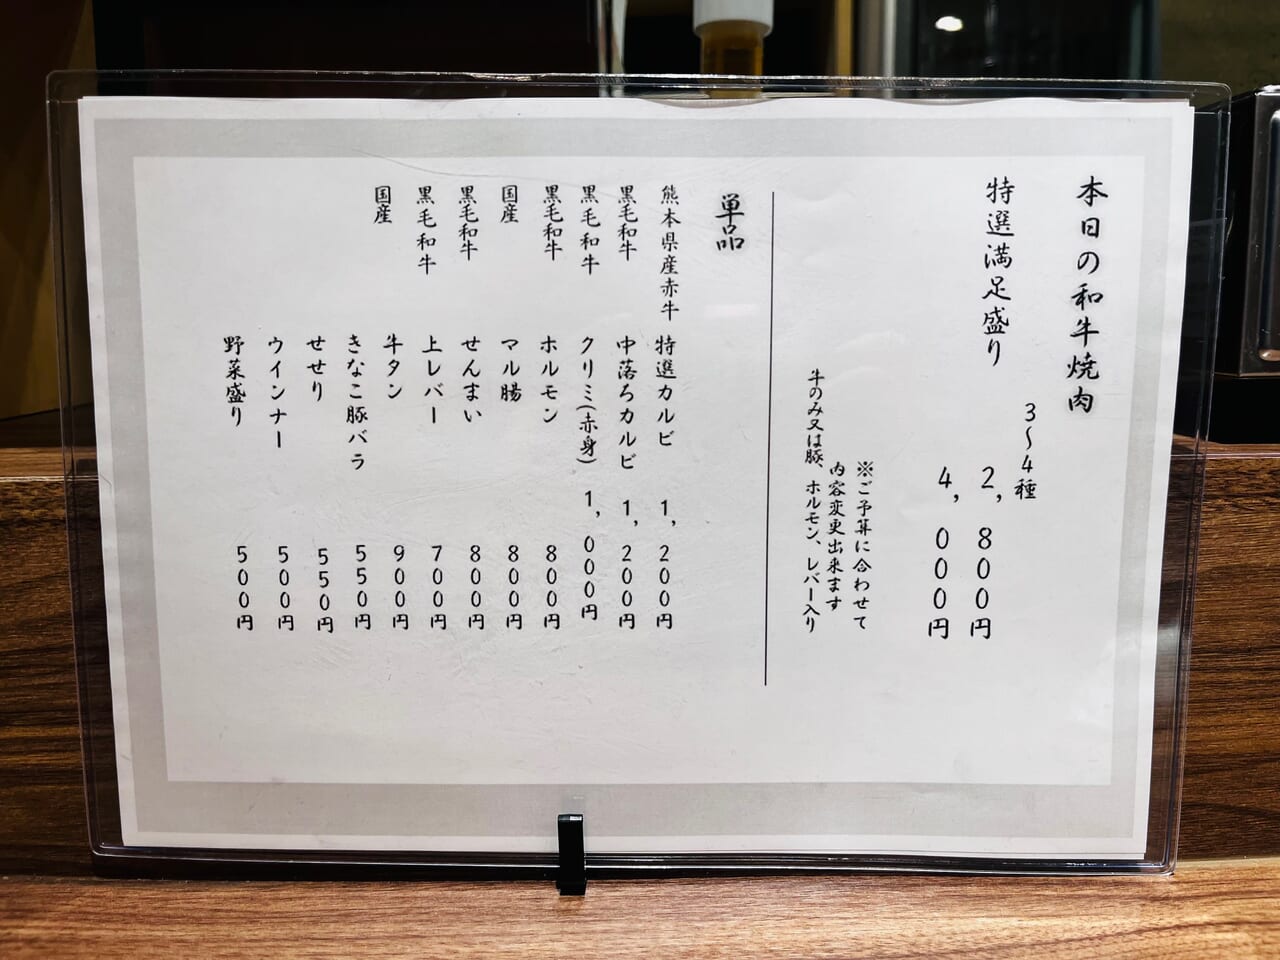 本日の和牛焼肉
3〜4種
特選満足盛り 2,800円
4,000円
※ご予算に合わせて
内容変更出来ます
牛のみ又は豚、ホルモン、レバー入り
単品
熊本県産赤牛 特選カルビ 1,200円
黒毛和牛 中落ろカルビ 1,200円
黒毛和牛 クリミ(赤身) 1,000円
黒毛和牛 ホルモン 800円
国産 マル腸 800円
黒毛和牛 せんまい 800円
黒毛和牛 上レバー 700円
国産 牛タン 900円
きなこ豚バラ 550円
せせり 550円
ウインナー 500円
野菜盛り 500円